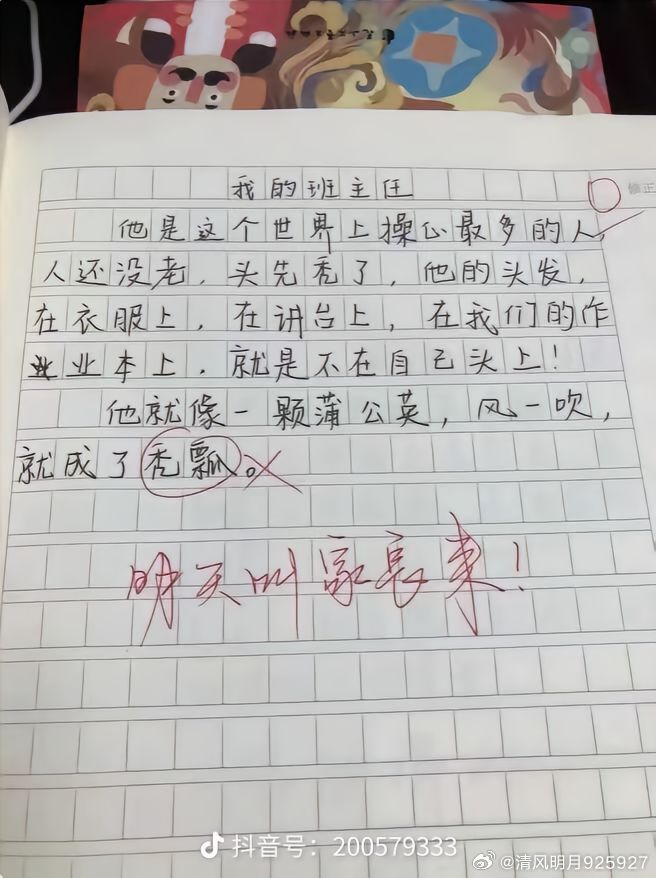 我的班主任
修正
他是这个世界上操心最多的人,
人还没老,头先秃了,他的头发,
在衣服上,在讲台上,在我们的作
业本上,就是不在自己头上!
他就像一颗蒲公英,风一吹,
就成了秃瓢。
明天叫家长来!
抖音号:200579333
@清风明月925927